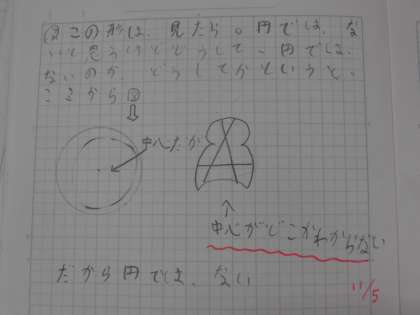 このかい形は、見たら。円では、な
いと思うけどどうして、円では、
ないのか、どうしてかというと、
ここから図
⇩
中心だが
↑
中心がどこかわからない
だから円では、ない
11/5